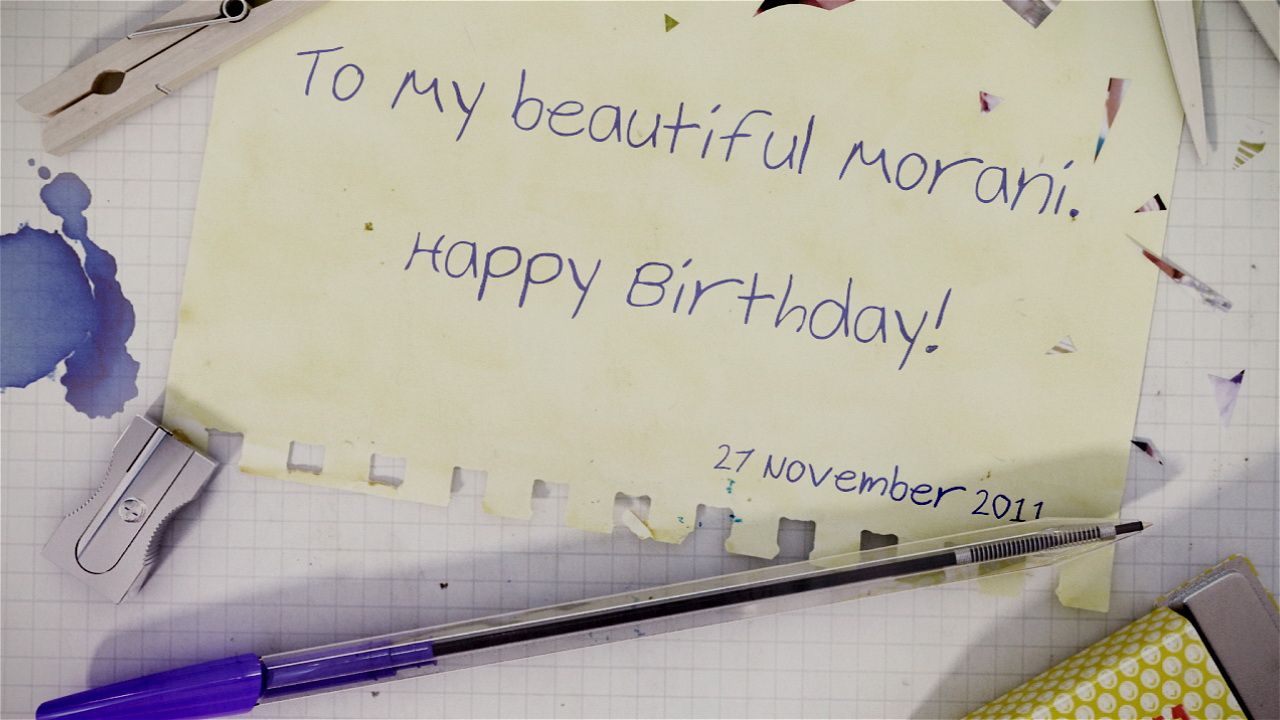 To my beautiful Morani.
Happy Birthday!
27 November 2011